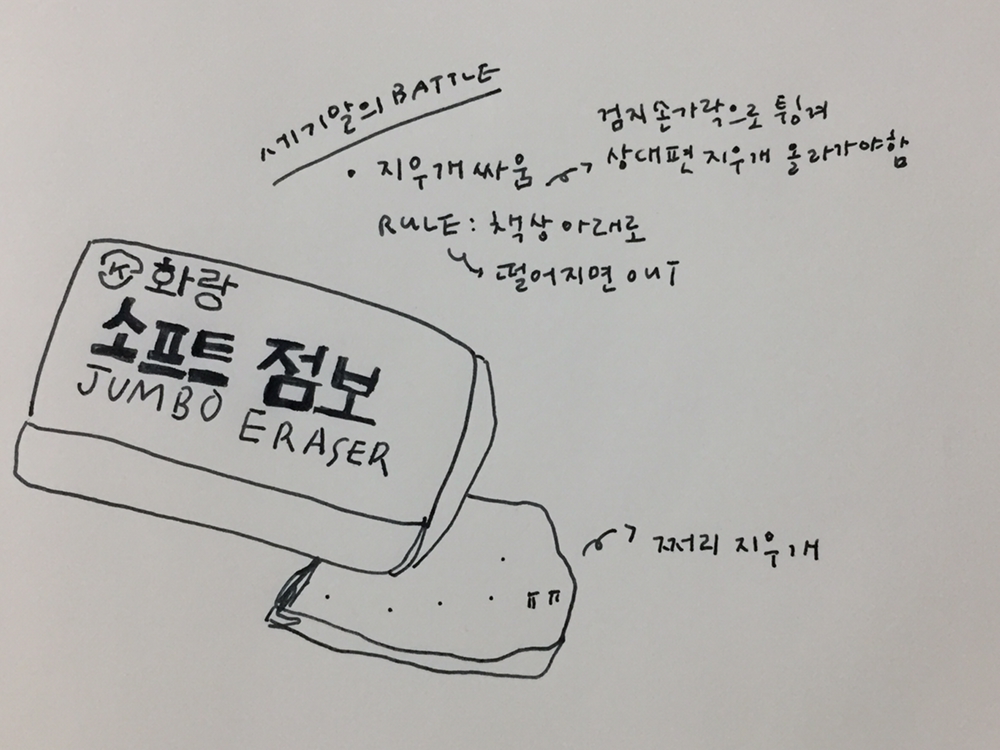 세기말의 BATTLE
• 지우개 싸움
검지손가락으로 튕겨
상대편 지우개 올라가야함
RULE : 책상 아래로
떨어지면 OUT
K 화랑
소프트 점보
JUMBO ERASER
ㅠㅠ
쩌리 지우개